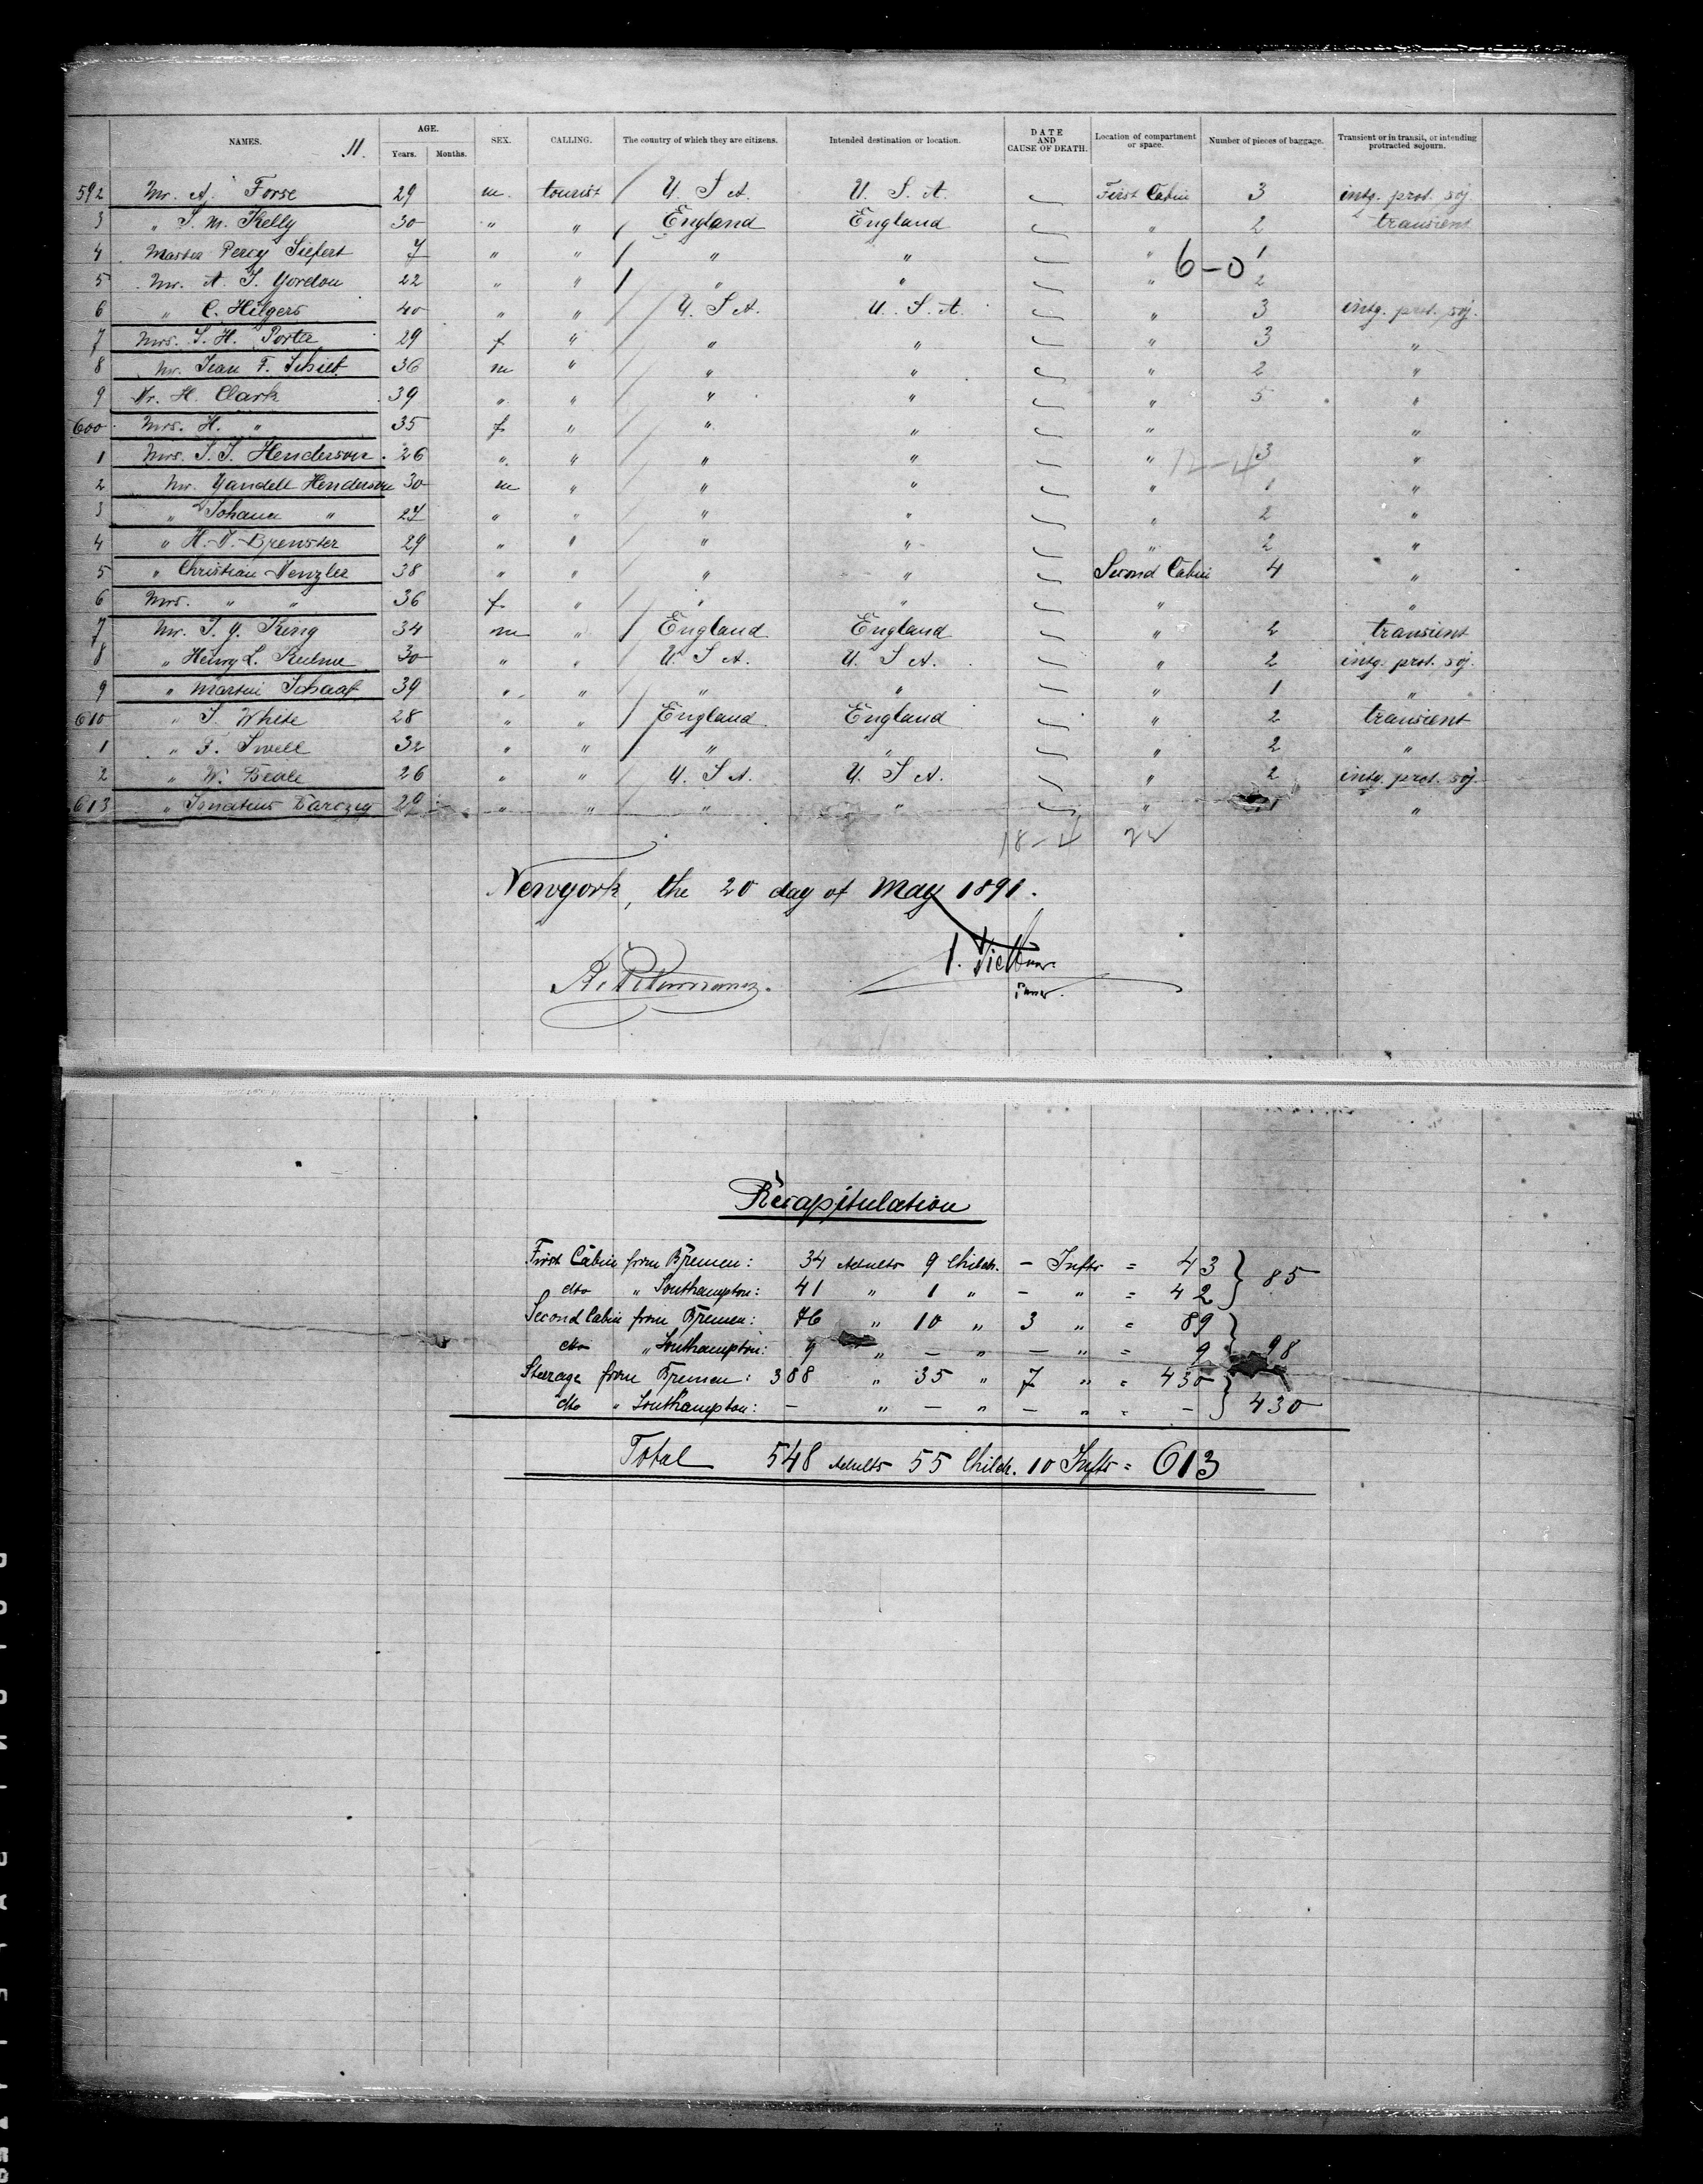 NAMES. 11. AGE. Years. Months. SEX. CALLING. The country of which they are citizens. Intended destination or location. DATE AND CAUSE OF DEATH. Location of compartment or space. Number of pieces of baggage. Transient or in transit, or intending protracted sojourn.
592 Mr. A. Forse 29 m. tourist / U. S. A. U. S. A. First Cabin 3 intg. prot. soj.
3 " S. M. Kelly 30 " " / England England " 2 transient
4 Master Percy Siefert 7 " " / " " " 1
6-0
5 Mr. A. T. Gordon 22 " " / " " " 2
6 " C. Hilgers 40 " " / U. S. A. U. S. A. " 3 intg. prot. soj.
7 Mrs. S. H. Porter 29 f " " " " 3 "
8 Mr. Jean F. 36 m " " " " 2 "
9 Dr. H. Clark 39 " " " " " 5 "
600 Mrs. H. " 35 f " " " " "
1 Mrs. S. S. Henderson 26 " " " " " 3 "
12-4
2 Mr. Yandell Henderson 30 m " " " " 1 "
3 " Johann " 27 " " " " " 2 "
4 " H. T. Brewster 29 " " " " " 2 "
5 " Christian Wenzler 38 " " " " Second Cabin 4 "
6 Mrs. " " 36 f. " " " " "
7 Mr. T. G. King 34 m " / England England " 2 transient
8 " Henry L. 30 " " U. S. A. U. S. A. " 2 intg. prot. soj.
9 " Martin Schaaf 39 " " " " " 1 "
610 " S. White 28 " " / England England " 2 transient
1 " F. Swell 32 " " / " " " 2 "
2 " W. Beale 26 " " U. S. A. U. S. A. " 2 intg. prot. soj.
613 " Ignatius 29 " " " " " 1 "
18-4 22
Newyork, the 20 day of May 1891.
Recapitulation
First Cabin from Bremen: 34 Adults 9 Childr. - Infts = 43 } 85
dto " Southampton: 41 " 1 " - " = 42
Second Cabin from Bremen: 76 " 10 " 3 " = 89 } 98
dto " Southampton: 9 " - " - " = 9
Steerage from Bremen: 388 " 35 " 7 " = 430 } 430
dto " Southampton: - " - " - " = -
Total 548 Adults 55 Childr. 10 Infts = 613